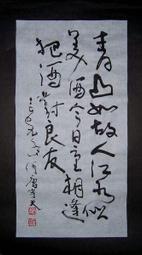 青山如故人江水似
美酒今日重相逢
把酒對良友